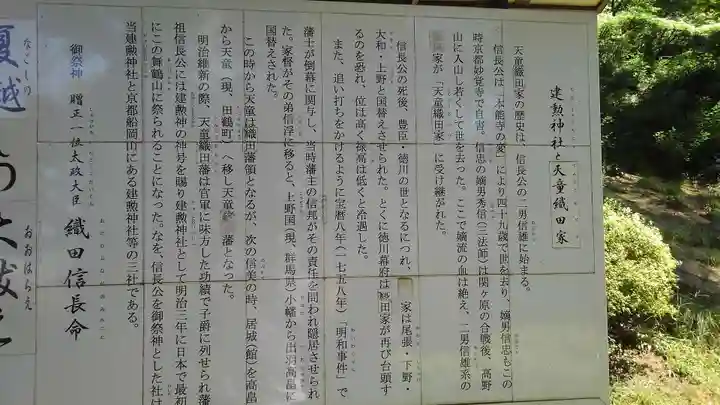 建勲神社と天童織田家
天童織田家の歴史は、信長公の二男信雄に始まる。
信長公は「本能寺の変」により四十九歳で世を去り、嫡男信忠もこの
時京都妙覚寺で自害。信忠の嫡男秀信(三法師)は関ヶ原の合戦後、高野
山に入山し若くして世を去った。ここで嫡流の血は絶え、二男信雄系の
家が「天童織田家」に受け継がれた。
信長公の死後、豊臣・徳川の世となるにつれ、家は尾張・下野・
大和・上野と国替えさせられた。とくに徳川幕府は織田家が再び台頭す
るのを恐れ、位は高く禄高は低くと冷遇した。
また、追い打ちをかけるように宝暦八年(一七五八年)「明和事件」で
藩士が倒幕に関与し、当時藩主の信邦がその責任を問われ隠居させられ
た。家督がその弟信浮に移ると、上野国(現、群馬県)小幡から出羽高畠に
国替えされた。
この時から天童は織田藩領となるが、次の信美の時、居城(館)を高畠
から天童(現、田鶴町)へ移し天童 藩となった。
明治維新の際、天童織田藩は官軍に味方した功績で子爵に列せられ藩
祖信長公には建勲神の神号を賜り建勲神社として明治三年に日本で最初
にこの舞鶴山に祭られることになった。なを、信長公を御祭神とした社は
当建勲神社と京都船岡山にある建勲神社等の三社である。
御祭神 贈正一位太政大臣 織田信長命
しょういちいだじょうだいじん おだのぶながのみこと
夏越の大祓え
なごし おおはらえ